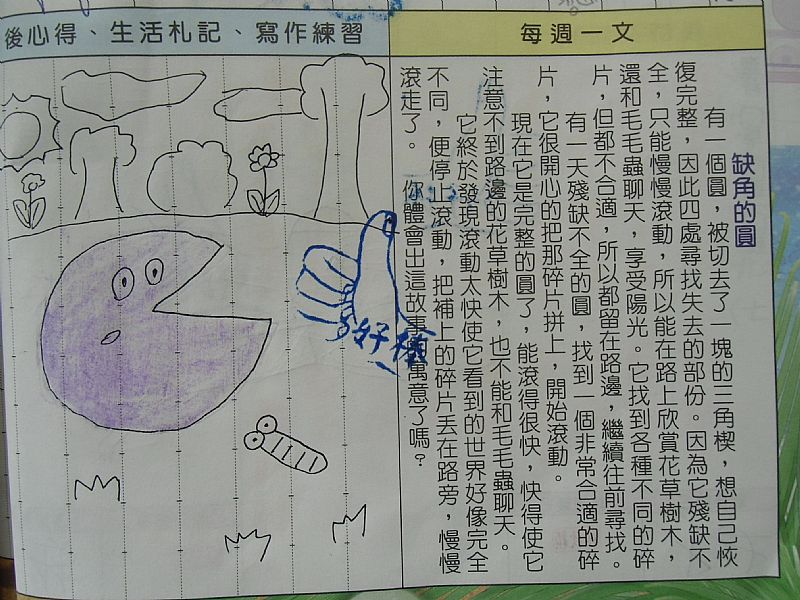 後心得、生活札記、寫作練習
每週一文
缺角的圓
有一個圓，被切去了一塊的三角楔，想自己恢
復完整，因此四處尋找失去的部份。因為它殘缺不
全，只能慢慢滾動，所以能在路上欣賞花草樹木，
還和毛毛蟲聊天，享受陽光。它找到各種不同的碎
片，但都不合適，所以都留在路邊，繼續往前尋找。
有一天殘缺不全的圓，找到一個非常合適的碎
片，它很開心的把那碎片拼上，開始滾動。
現在它是完整的圓了，能滾得很快，快得使它
注意不到路邊的花草樹木，也不能和毛毛蟲聊天。
它終於發現滾動太快使它看到的世界好像完全
不同，便停止滾動，把補上的碎片丟在路旁，慢慢
滾走了。你體會出這故事寓意了嗎？
好樣